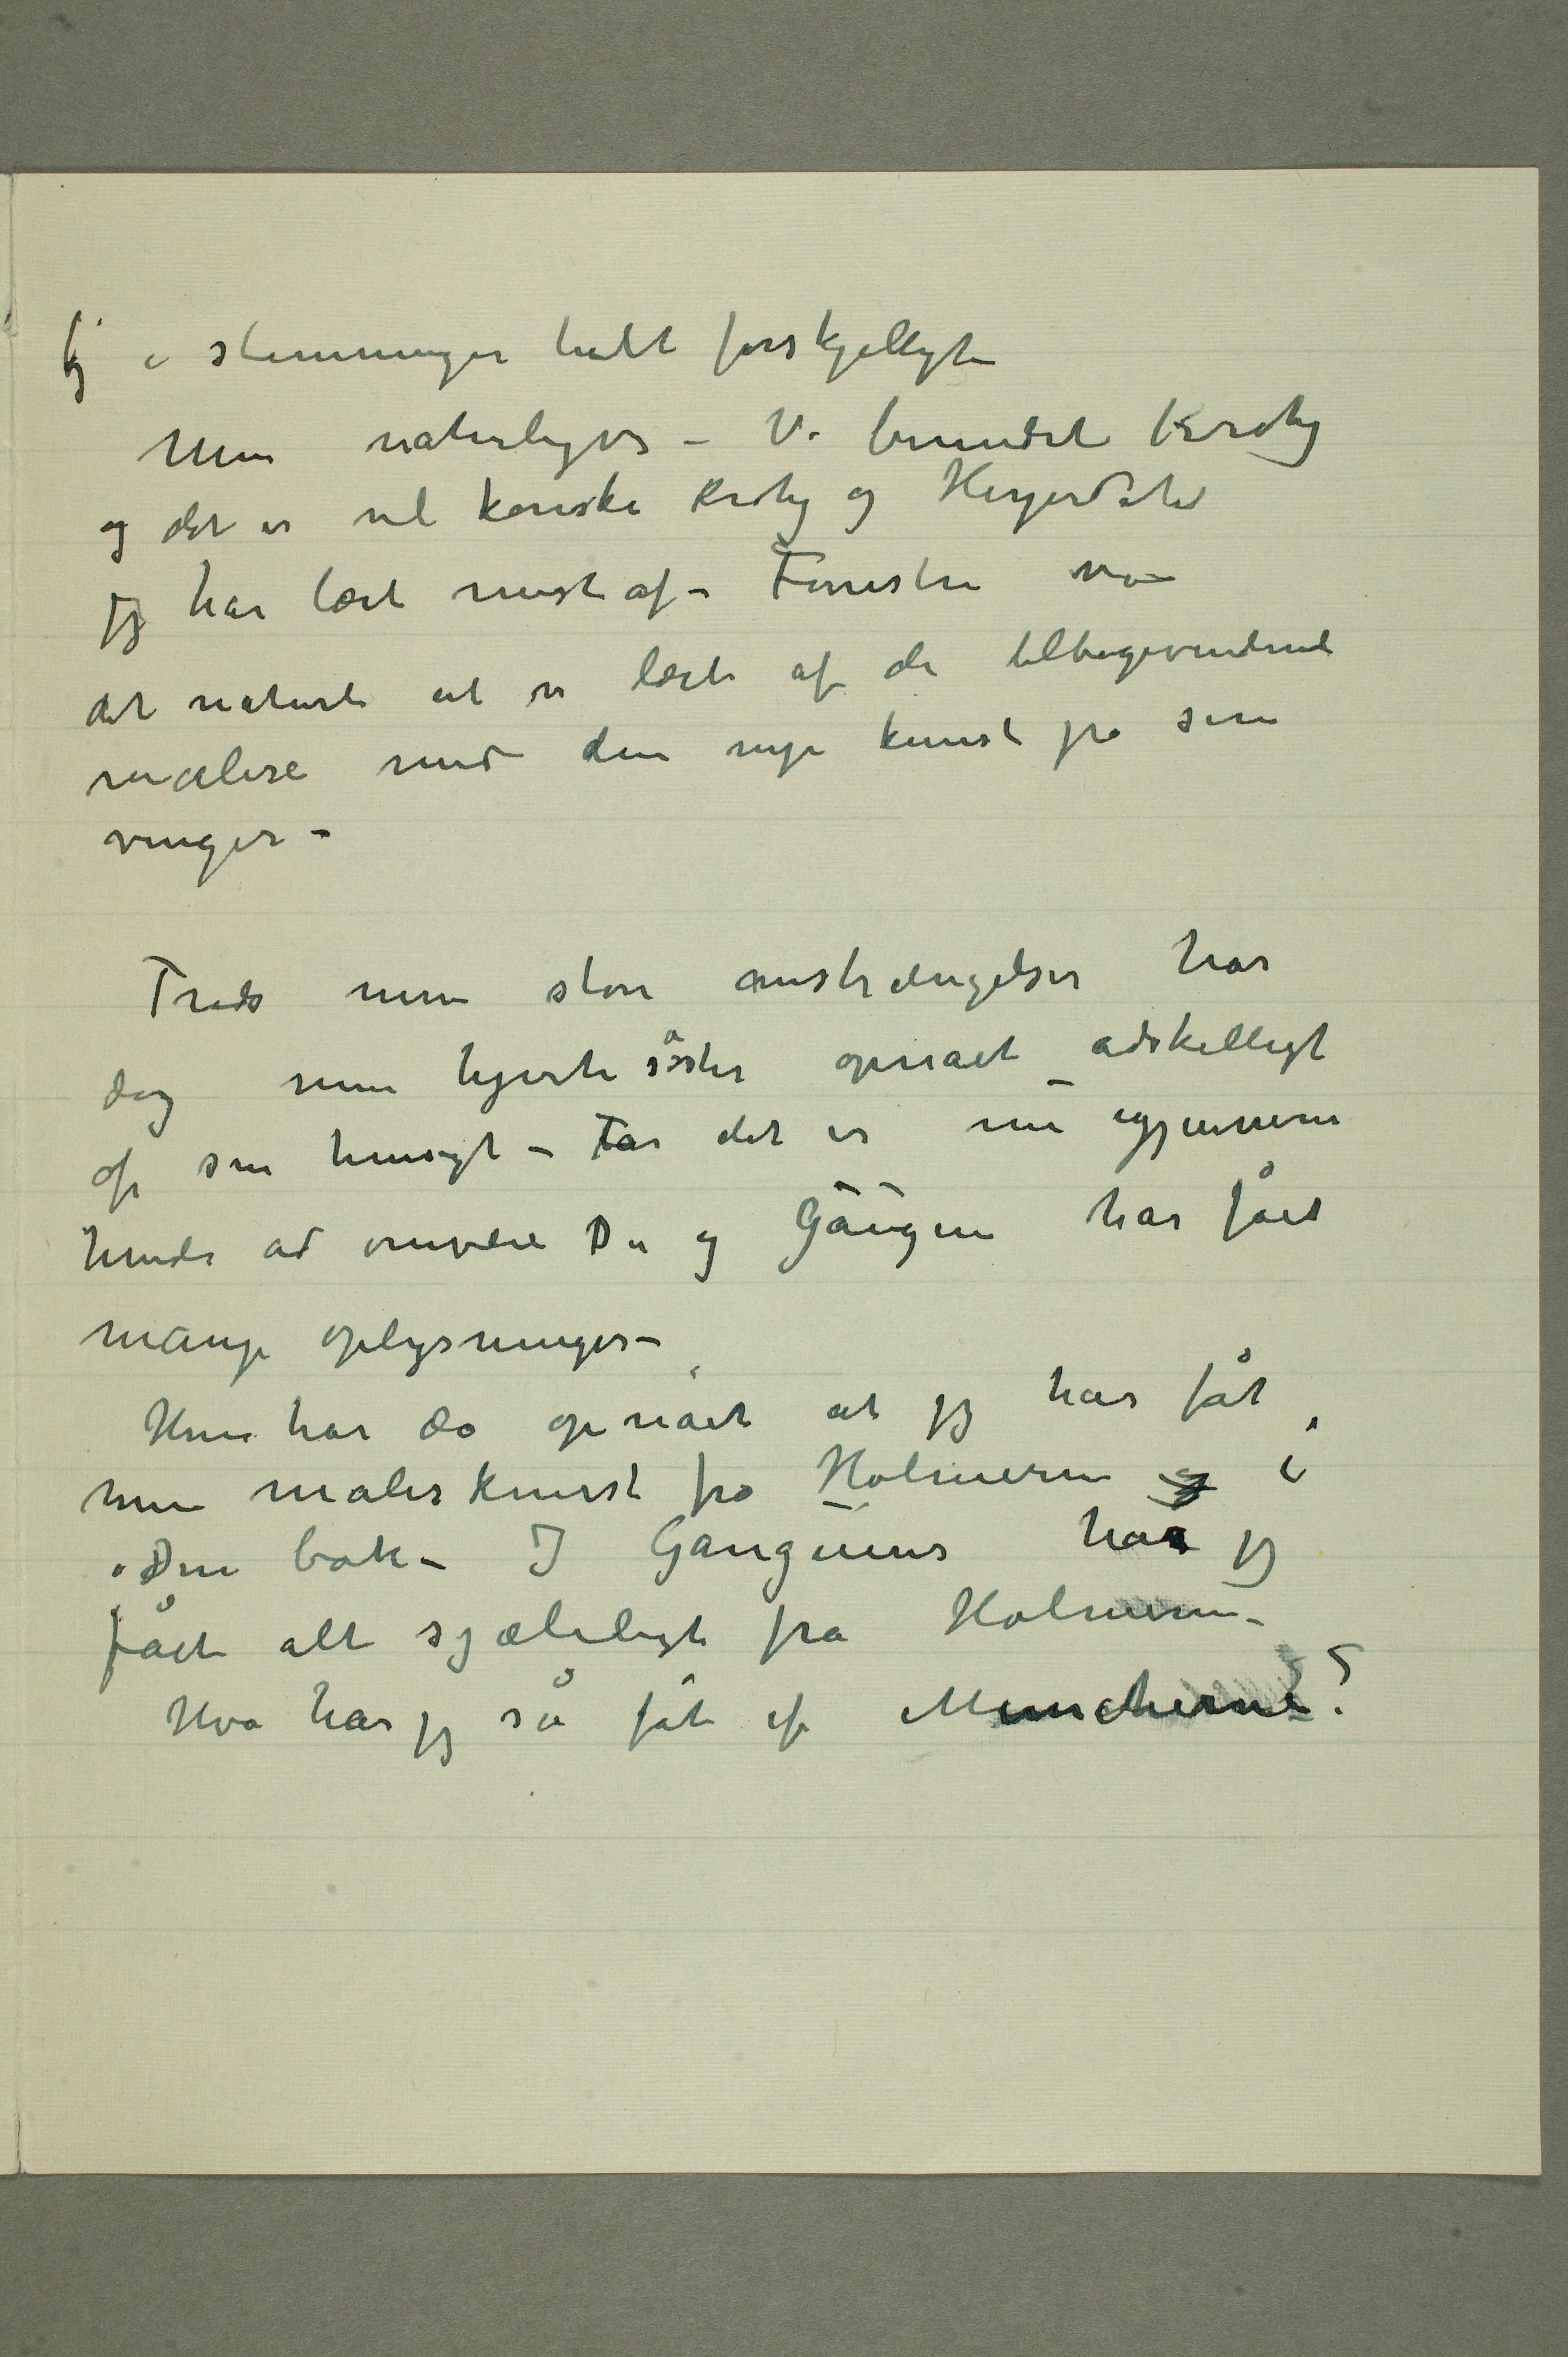 og i stemninger helt forskjelligt
Men naturligvis – Vi beundret Krohg
og det er vel kanske Krohg og Heyerdahl
jeg har lært mest af – Forresten var
det naturlig at vi lærte af de tilbagevendende
malere med den nye kunst på sine
vinger –
Trods mine store anstrængelser har
dog min kjære søster opnået adskilligt
af sin hensigt – For det er nu igjennem
hende at Du og Gaugin har fået
mange oplysninger –
Hun har da opnået at jeg har fåt
min malerkunst fra Holmerne og i
i Din bok – I Gaugins har jeg
fået alt sjæleligt fra Holmerne –
Hva har jeg så fåt af Muncherne?